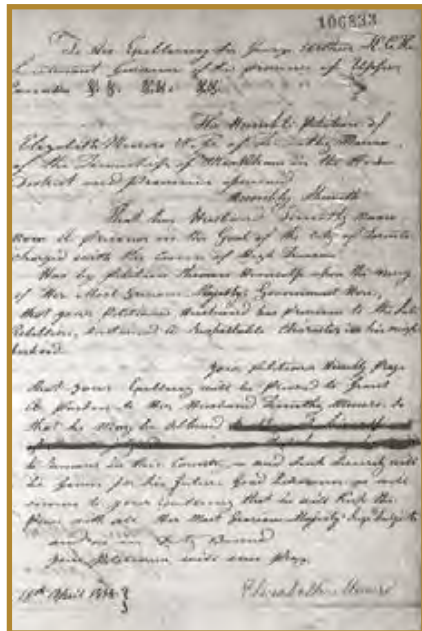 106833
To His Excellency Sir George Arthur K.C.H.
Lieutenant Governor of the province of Upper
Canada &c. &c. &c.
The Humble Petition of
Elizabeth Munro Wife of Timothy Munro
of the Township of Markham in the Home
District and Province aforesaid
Humbly Sheweth
That her Husband Timothy Munro
now a prisoner in the Gaol of the City of Toronto
charged with the Crime of High Treason
Has by Petition thrown Himself upon the mercy
of Her Most Gracious Majesty's Government Here,
that your Petitioners Husband has previous to the late
Rebellion, sustained a respectable character in his neigh
bourhood.
Your petitioner Humbly Prays
that your Excellency will be pleased to Grant
A pardon to Her Husband Timothy Munro. So
that he may be allowed
to remain in this Country, and Such Security will
be Given for his future Good behaviour as will
to your Excellency that he will keep the
Peace with all Her Most Gracious Majesty's Subjects
and as in Duty Bound
your Petitioner will ever Pray.
April 1838
Elizabeth Munro